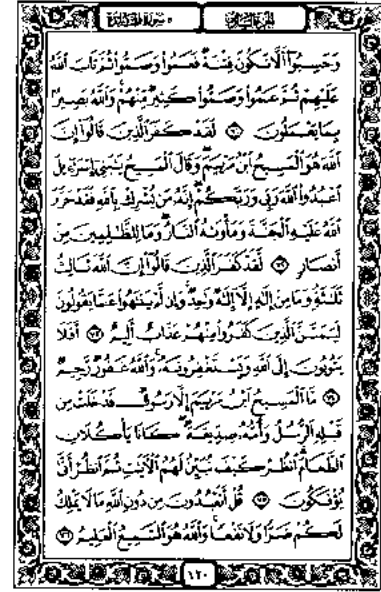 الجزء السادس
٥ سورة المائدة
وَحَسِبُوٓا۟ أَلَّا تَكُونَ فِتْنَةٌ فَعَمُوا۟ وَصَمُّوا۟ ثُمَّ تَابَ ٱللَّهُ
عَلَيْهِمْ ثُمَّ عَمُوا۟ وَصَمُّوا۟ كَثِيرٌ مِّنْهُمْ ۚ وَٱللَّهُ بَصِيرٌۢ
بِمَا يَعْمَلُونَ ۝٧١ لَقَدْ كَفَرَ ٱلَّذِينَ قَالُوٓا۟ إِنَّ
ٱللَّهَ هُوَ ٱلْمَسِيحُ ٱبْنُ مَرْيَمَ ۖ وَقَالَ ٱلْمَسِيحُ يَٰبَنِىٓ إِسْرَٰٓءِيلَ
ٱعْبُدُوا۟ ٱللَّهَ رَبِّى وَرَبَّكُمْ ۖ إِنَّهُۥ مَن يُشْرِكْ بِٱللَّهِ فَقَدْ حَرَّمَ
ٱللَّهُ عَلَيْهِ ٱلْجَنَّةَ وَمَأْوَىٰهُ ٱلنَّارُ ۖ وَمَا لِلظَّٰلِمِينَ مِنْ
أَنصَارٍ ۝٧٢ لَّقَدْ كَفَرَ ٱلَّذِينَ قَالُوٓا۟ إِنَّ ٱللَّهَ ثَالِثُ
ثَلَٰثَةٍ ۘ وَمَا مِنْ إِلَٰهٍ إِلَّآ إِلَٰهٌ وَٰحِدٌ ۚ وَإِن لَّمْ يَنتَهُوا۟ عَمَّا يَقُولُونَ
لَيَمَسَّنَّ ٱلَّذِينَ كَفَرُوا۟ مِنْهُمْ عَذَابٌ أَلِيمٌ ۝٧٣ أَفَلَا
يَتُوبُونَ إِلَى ٱللَّهِ وَيَسْتَغْفِرُونَهُۥ ۚ وَٱللَّهُ غَفُورٌ رَّحِيمٌ
۝٧٤ مَّا ٱلْمَسِيحُ ٱبْنُ مَرْيَمَ إِلَّا رَسُولٌ قَدْ خَلَتْ مِن
قَبْلِهِ ٱلرُّسُلُ وَأُمُّهُۥ صِدِّيقَةٌ ۖ كَانَا يَأْكُلَانِ
ٱلطَّعَامَ ۗ ٱنظُرْ كَيْفَ نُبَيِّنُ لَهُمُ ٱلْءَايَٰتِ ثُمَّ ٱنظُرْ أَنَّىٰ
يُؤْفَكُونَ ۝٧٥ قُلْ أَتَعْبُدُونَ مِن دُونِ ٱللَّهِ مَا لَا يَمْلِكُ
لَكُمْ ضَرًّا وَلَا نَفْعًا ۚ وَٱللَّهُ هُوَ ٱلسَّمِيعُ ٱلْعَلِيمُ ۝٧٦
١٢٠